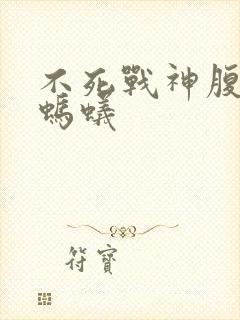 不死戰神腹
螞蟻
符寶